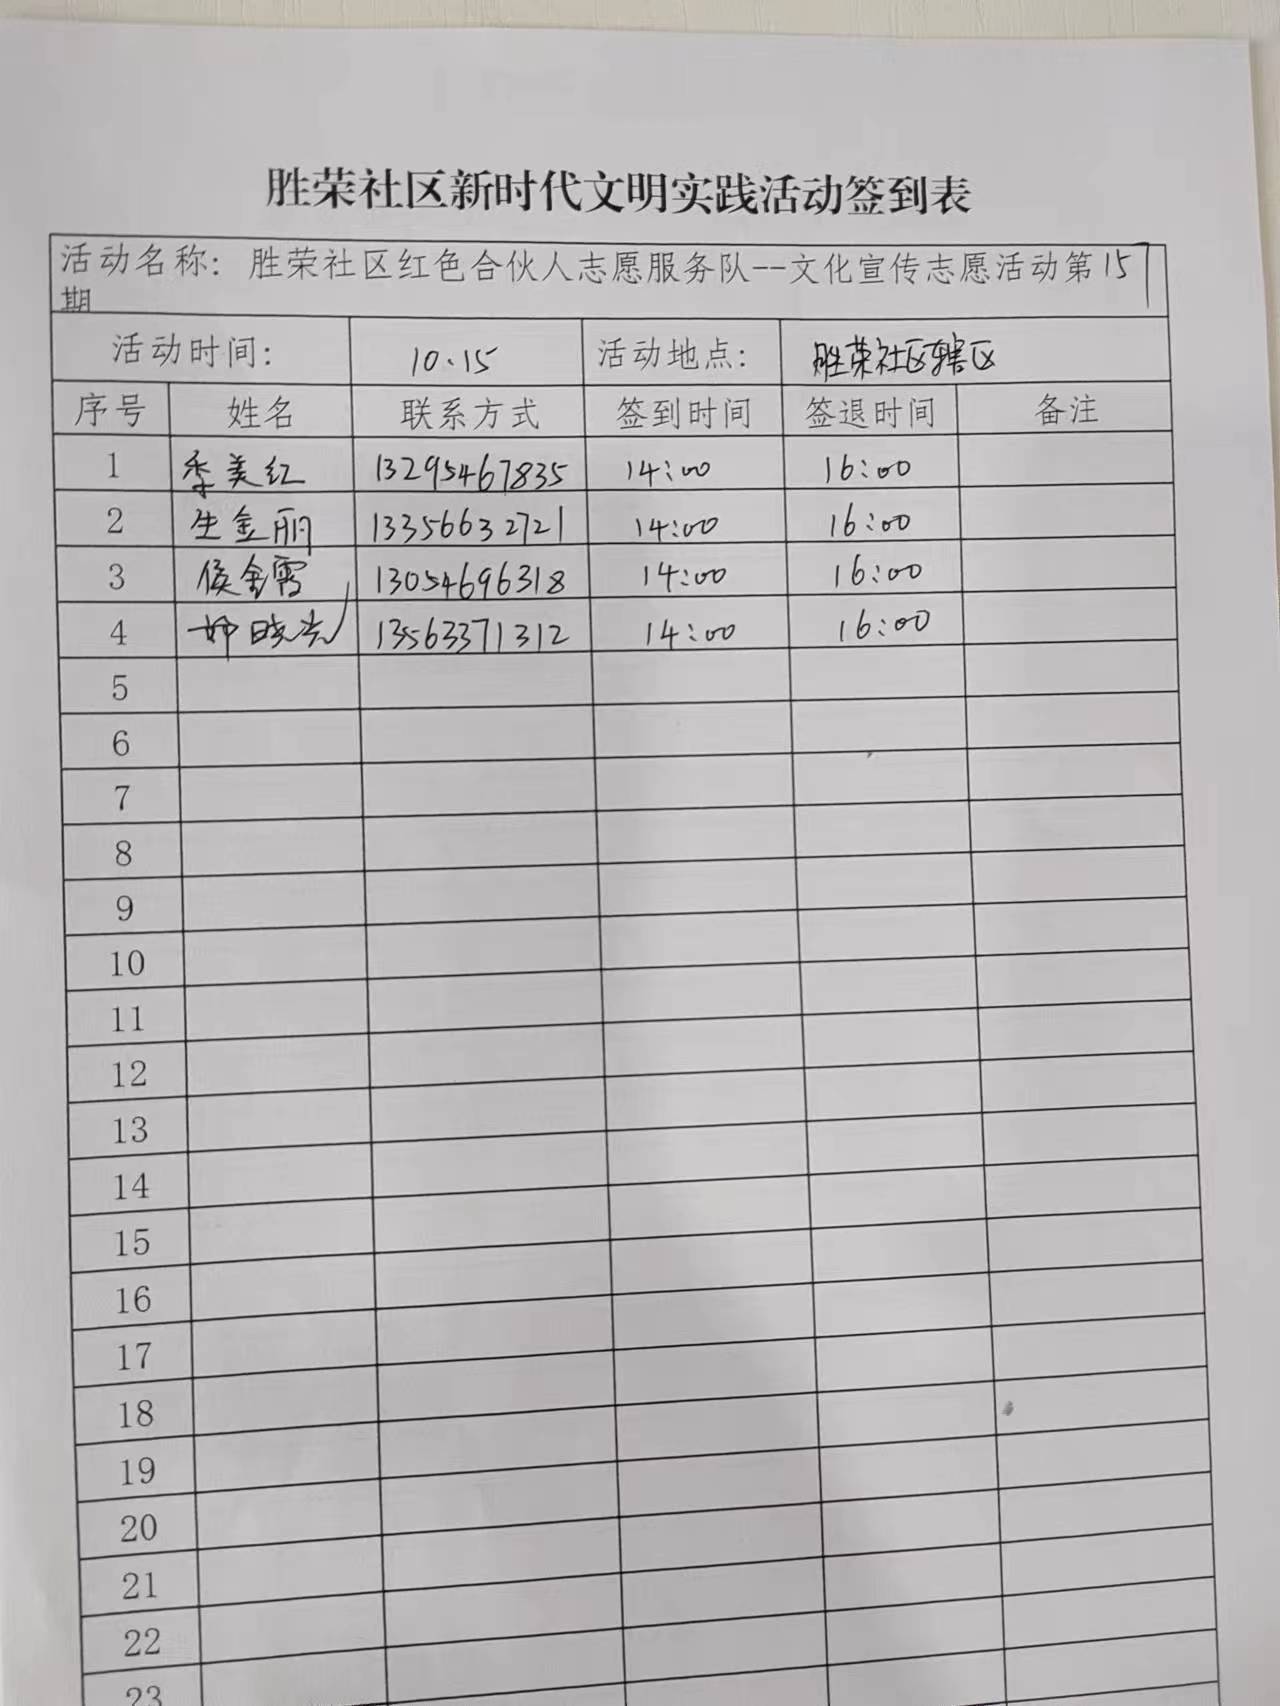 胜荣社区新时代文明实践活动签到表
活动名称：胜荣社区红色合伙人志愿服务队--文化宣传志愿活动第157
期
活动时间： 10.15 活动地点： 胜荣社区辖区
序号 姓名 联系方式 签到时间 签退时间 备注
1 季美红 13295467835 14:00 16:00
2 生金丽 13356632721 14:00 16:00
3 侯金霄 13054696318 14:00 16:00
4 晓光 13563371312 14:00 16:00
5
6
7
8
9
10
11
12
13
14
15
16
17
18
19
20
21
22
23